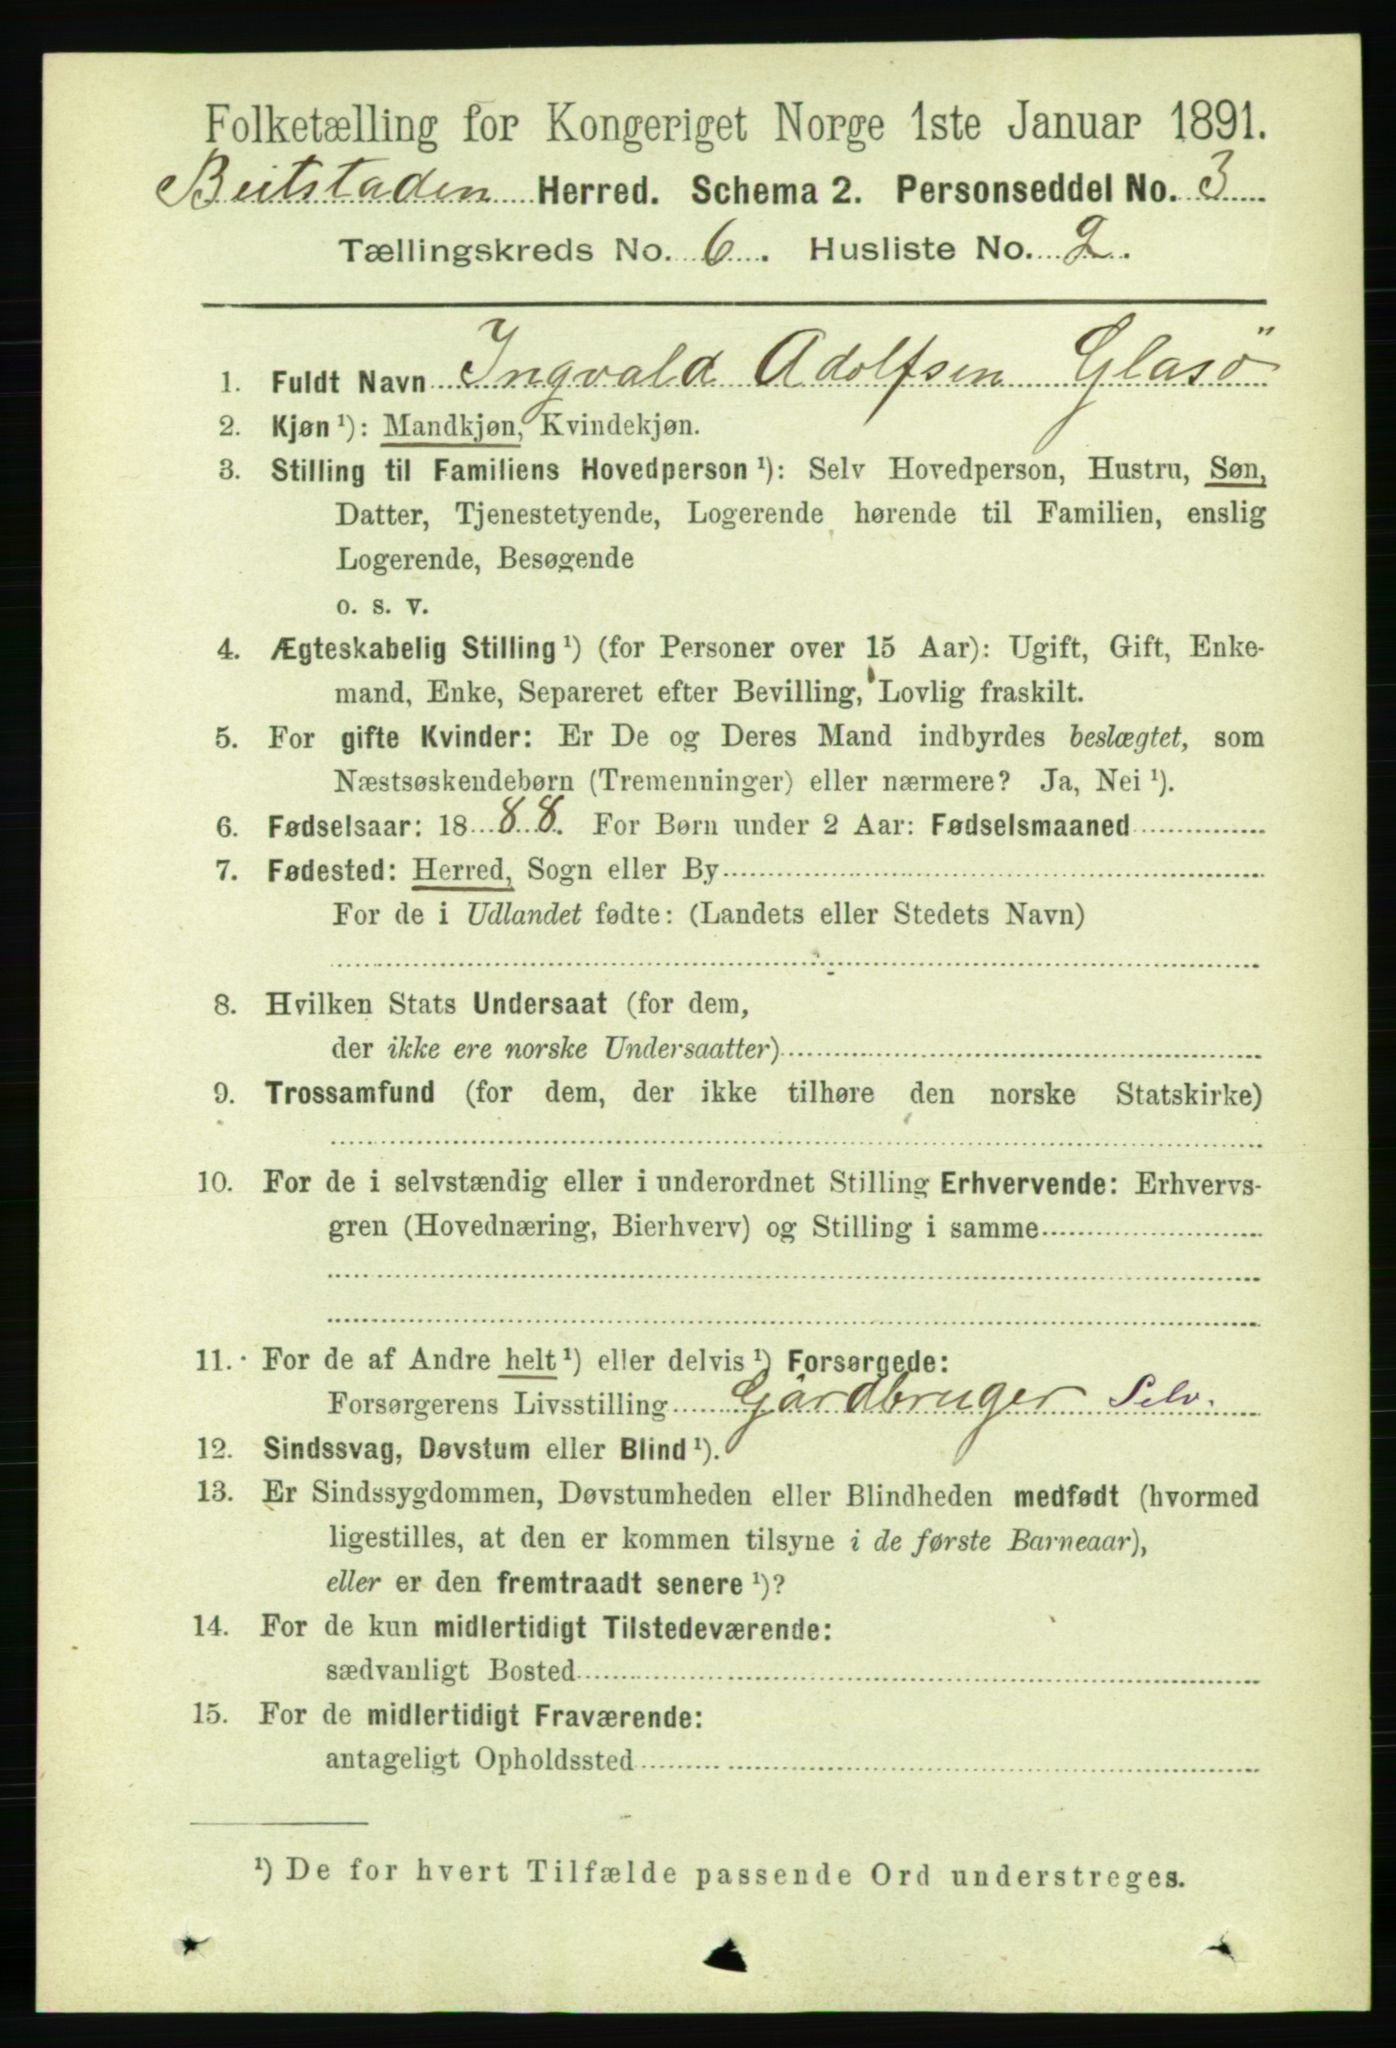 Folketælling for Kongeriget Norge 1ste Januar 1891.
Beitstaden Herred. Schema 2. Personseddel No. 3
Tællingskreds No. 6. Husliste No. 2.
1. Fuldt Navn Ingvald Adolfsen Glasö
2. Kjøn ¹): Mandkjøn, Kvindekjøn.
3. Stilling til Familiens Hovedperson ¹): Selv Hovedperson, Hustru, Søn,
Datter, Tjenestetyende, Logerende hørende til Familien, enslig
Logerende, Besøgende
o. s. v.
4. Ægteskabelig Stilling ¹) (for Personer over 15 Aar): Ugift, Gift, Enke-
mand, Enke, Separeret efter Bevilling, Lovlig fraskilt.
5. For gifte Kvinder: Er De og Deres Mand indbyrdes beslægtet, som
Næstsøskendebørn (Tremenninger) eller nærmere? Ja, Nei ¹).
6. Fødselsaar: 1888. For Børn under 2 Aar: Fødselsmaaned
7. Fødested: Herred, Sogn eller By
For de i Udlandet fødte: (Landets eller Stedets Navn)
8. Hvilken Stats Undersaat (for dem,
der ikke ere norske Undersaatter)
9. Trossamfund (for dem, der ikke tilhøre den norske Statskirke)
10. For de i selvstændig eller i underordnet Stilling Erhvervende: Erhvervs-
gren (Hovednæring, Bierhverv) og Stilling i samme
11. For de af Andre helt ¹) eller delvis ¹) Forsørgede:
Forsørgerens Livsstilling Gårdbruger Selv.
12. Sindssvag, Døvstum eller Blind ¹).
13. Er Sindssygdommen, Døvstumheden eller Blindheden medfødt (hvormed
ligestilles, at den er kommen tilsyne i de første Barneaar),
eller er den fremtraadt senere ¹)?
14. For de kun midlertidigt Tilstedeværende:
sædvanligt Bosted
15. For de midlertidigt Fraværende:
antageligt Opholdssted
¹) De for hvert Tilfælde passende Ord understreges.